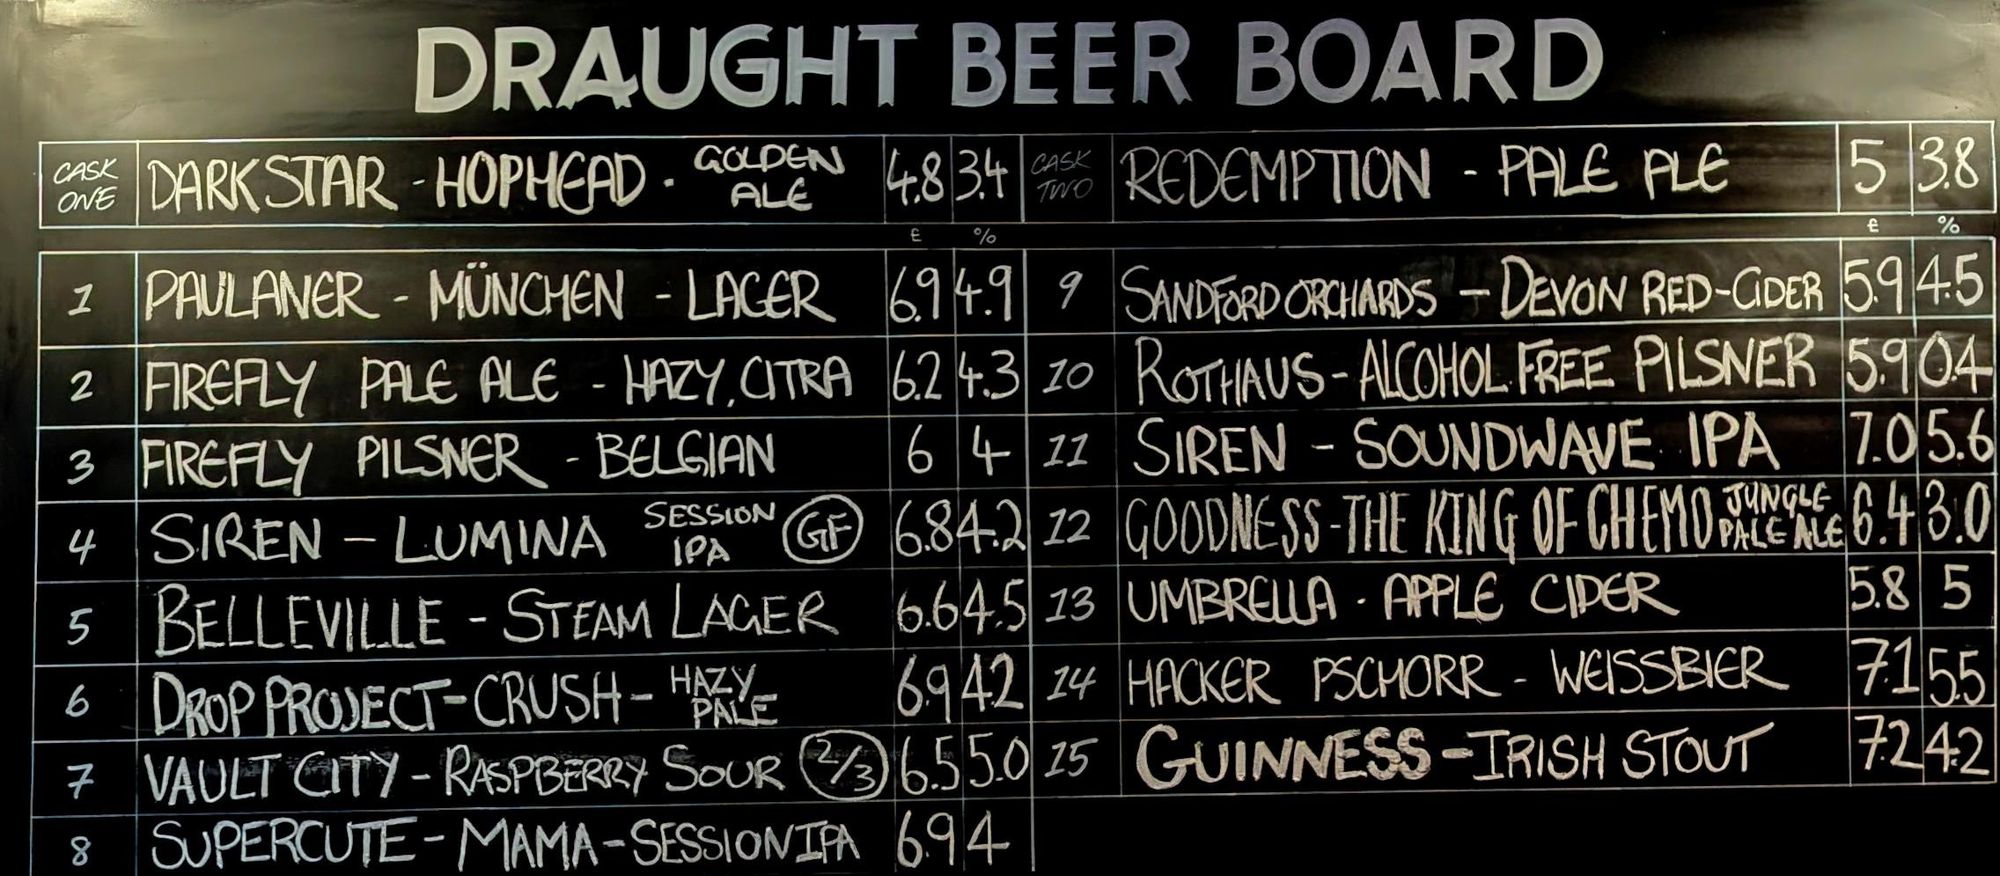 DRAUGHT BEER BOARD
CASK ONE DARK STAR - HOPHEAD - GOLDEN ALE 4.8 3.4
CASK TWO REDEMPTION - PALE ALE 5 3.8
£ %
£ %
1 PAULANER - MÜNCHEN - LAGER 6.9 4.9
2 FIREFLY PALE ALE - HAZY, CITRA 6.2 4.3
3 FIREFLY PILSNER - BELGIAN 6 4
4 SIREN - LUMINA SESSION IPA GF 6.8 4.2
5 BELLEVILLE - STEAM LAGER 6.6 4.5
6 DROP PROJECT - CRUSH - HAZY PALE 6.9 4.2
7 VAULT CITY - RASPBERRY SOUR 2/3 6.5 5.0
8 SUPERCUTE - MAMA - SESSION IPA 6.9 4
9 SANDFORD ORCHARDS - DEVON RED - CIDER 5.9 4.5
10 ROTHAUS - ALCOHOL FREE PILSNER 5.9 0.4
11 SIREN - SOUNDWAVE IPA 7.0 5.6
12 GOODNESS - THE KING OF CHEMO JUNGLE PALE ALE 6.4 3.0
13 UMBRELLA - APPLE CIDER 5.8 5
14 HACKER PSCHORR - WEISSBIER 7.1 5.5
15 GUINNESS - IRISH STOUT 7.2 4.2